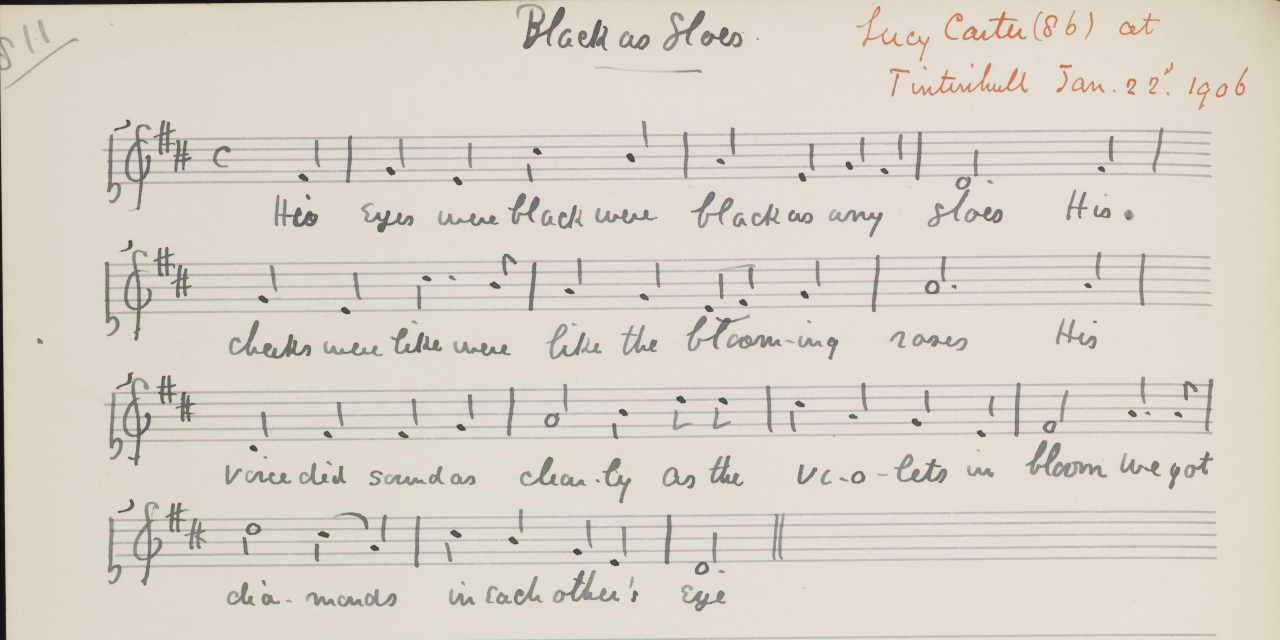 811
Black as Sloes.
Lucy Carter (86) at
Tintinhull Jan. 22d. 1906
C
His Eyes were black were black as any sloes His
cheeks were like were like the bloom-ing roses His
voice did sound as clear-ly as the vi-o-lets in bloom we got
dia-monds in each other's Eye